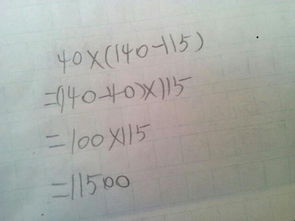 40×(140-115)
=(140-40)×115
=100×115
=11500